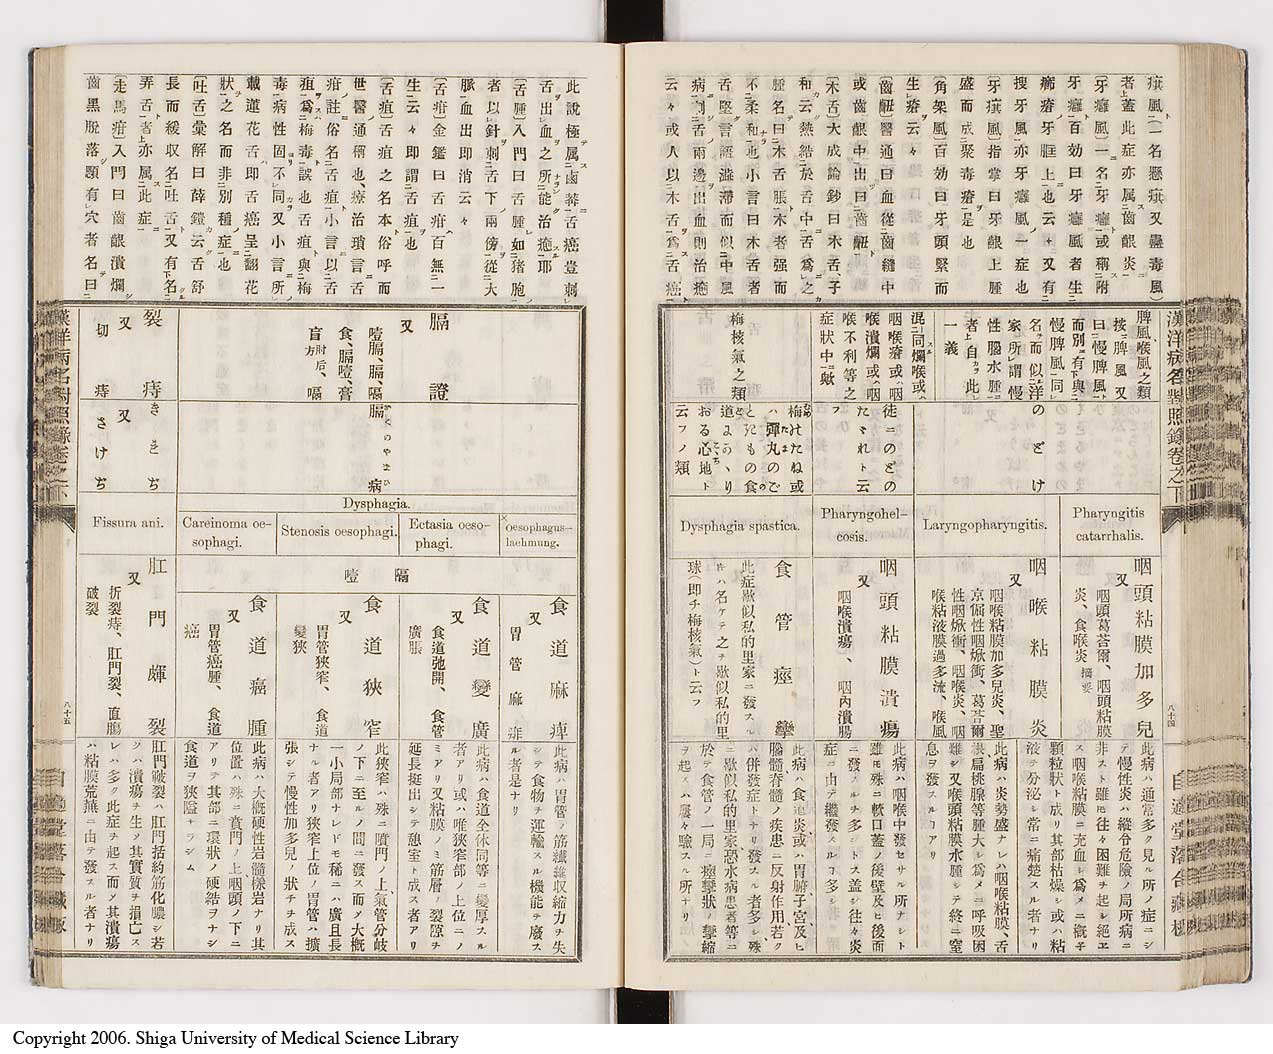 癀風〕(一名懸癀又蟲毒風)
者上蓋此症亦属齒齦炎
〔牙癰風〕一名牙癰或稱附
牙癰百効曰牙癰風者生
癤瘡牙眶上也云々又有
搜牙風亦牙癰風一症也
〔牙癀風〕指掌曰牙齦上腫
盛而成聚毒瘡是也
〔角架風〕百効曰牙頭緊而
生瘡云々
〔齒衄〕醫通曰血從齒縫中
或齒齦中出曰齒衄
〔木舌〕大成論鈔曰木舌子
和云熱結於舌中舌爲之
腫名曰木舌脹木者强而
不柔和也小言曰木舌者
舌堅言語澁滯而似中風
病刺舌兩邊出血則治癒
云々或人以木舌爲舌癌
脾風、喉風之類
按脾風又
曰慢脾風
而別有下與
慢脾風同
名而似洋
家所謂慢
性腦水腫
者上自カラ此レ
一義
のどけ
混同爛喉或
咽喉瘡或咽
喉潰爛或咽
喉不利等之
症狀中歟
徒ニのどの
たゞれト云
フ
梅核氣之類
梅のたね或
ハ彈丸のご
ときもの食
道よかゝり
おる心地ト
云フノ類
Pharyngitis
catarrhalis.
Laryngopharyngitis.
Pharyngohel-
cosis.
Dysphagia spastica.
咽頭粘膜加多兒
又
咽頭葛荅爾、咽頭粘膜
炎、食喉炎 摘要
咽喉粘膜炎
又
咽喉粘膜加多兒炎、聖
京偏性咽焮衝、葛荅爾
性咽焮衝、咽喉炎、咽
喉粘液膜過多流、喉風
咽頭粘膜潰瘍
又
咽喉潰瘍、咽內潰瘍
食管痙攣
此症歇似私的里家ニ發スル
モハ名ケテ之ヲ歇似私的里
球(即チ梅核氣)ト云フ
此病ハ通常多ク見ル所ノ症ニシ
テ慢性炎ハ縱令危險ノ局所病ニ
非スト雖モ往々困難ヲ起シ絕エ
ス咽喉粘膜ニ充血シ爲メニ概子
顆粒狀ト成リ其部枯燥シ或ハ粘
液ヲ分泌シ常ニ痛楚スル者ナリ
此病ハ炎勢盛ナレハ咽喉粘膜、舌
根、扁桃腺等腫大シ爲メニ呼吸困
難シ又喉頭粘膜水腫シテ終ニ窒
息ヲ發スルヿアリ
此病ハ咽喉中發セサル所ナシト
雖モ殊ニ軟口蓋ノ後壁及ヒ後面
ニ發スルヲ多シトス蓋シ往々炎
症ニ由テ繼發スルヿ多シ
此病ハ食道炎或ハ胃腑子宮及ヒ
腦髓脊髓ノ疾患ニ反射作用若ク
ハ併發症トナリ發スル者多シ殊
ニ歇似私的里家恐水病患者等ニ
於テ食管ノ一局ニ痙攣狀ノ攣縮
ヲ起スハ屢々驗スル所ナリ
漢洋病名對照錄卷之下
八十四
自適堂落合藏板
此說極テ属鹵莽舌癌豈刺
舌出血之所能治癒耶
〔舌腫〕入門曰舌腫如猪胞
者以針刺舌下兩傍從大
脈血出即消云々
〔舌疳〕金鑑曰舌疳百無一
生云々即謂舌疽也
〔舌疽〕舌疽之名本俗呼而
世醫通稱也、療治瑣言舌
疳註俗名舌疽小言以舌
疽爲梅毒誤也舌疽與梅
毒病性固不同又小言所
載蓮花舌即舌癌呈翻花
狀之名而非別種症也
〔吐舌〕彙解曰薛鎧云舌舒
長而緩收名吐舌又有下名
弄舌者上亦属此症
〔走馬疳〕入門曰齒齦潰爛
齒黑脫落顋有穴者名曰
膈證
又
噎膈、膈、噎
食、膈噎、膏
肓 肘后方、嗝
膈のやまひ
病
裂痔
又
切痔
ききぢ
又
さけぢ
Dysphagia.
Oesophagus-
laehmung.
Ectasia oeso-
phagi.
Stenosis oesophagi.
Careinoma oe-
sophagi.
Fissura ani.
膈噎
食道麻痺
又
胃管麻痺
食道變廣
又
食道弛開、食管
廣脹
食道狹窄
又
胃管狹窄、食道
變狹
食道癌腫
又
胃管癌腫、食道
癌
肛門皹裂
又
折裂痔、肛門裂、直膓
破裂
此病ハ胃管ノ筋纖維収縮力ヲ失
シテ食物ヲ運輸スル機能ヲ廢ス
ル者是ナリ
此病ハ食道全休同等ニ變厚スル
者アリ或ハ唯狹窄部ノ上位ニノ
ミアリ又粘膜ノミ筋層ノ裂隙ヲ
延長挺出シテ憩室ト成ス者アリ
此狹窄ハ殊ニ賁門ノ上、氣管分岐
ノ下ニ至ルノ間ニ發ス而ノ大概
一小局部ナレドモ稀ニハ廣且長
ナル者アリ狹窄上位ノ胃管ハ擴
張シテ慢性加多兒ノ狀チヲ成ス
此病ハ大概硬性岩髓樣岩ナリ其
位置ハ殊ニ賁門ノ上、咽頭ノ下ニ
アリテ其部ニ環狀ノ硬結ヲナシ
食道ヲ狹隘ナラシム
肛門皸裂ハ肛門括約筋化膿シ若
ツハ潰瘍ヲ生ノ其實質ヲ損亡ス
レハ多ク此症ヲ起ス而ノ其潰瘍
ハ粘膜荒蕪ニ由テ發スル者ナリ
漢洋病名對照錄卷之下
八十五
自適堂落合藏板
Copyright 2006. Shiga University of Medical Science Library